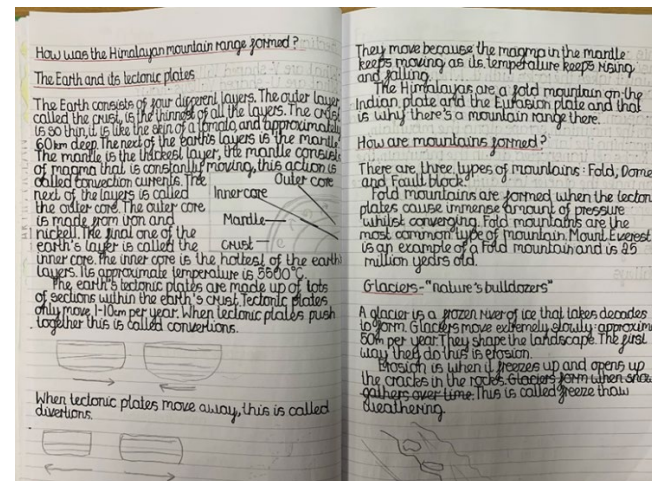 How was the Himalayan mountain range formed?
The Earth and its tectonic plates
The Earth consists of four different layers. The outer layer,
called the crust, is the thinnest of all the layers. The crust
is so thin, it is like the skin of a tomato, and approximately
60km deep. The next of the earth's layers is the mantle.
The mantle is the thickest layer, the mantle consists
of magma that is constantly moving, this action is
called convection currents. The
next of the layers is called
the outer core. The outer core
is made from iron and
nickell. The final one of the
earth's layer is called the
Outer core
Inner core
Mantle
crust
inner core. The inner core is the hottest of the earth
layers. Its approximate temperature is 5500°C.
The earth's tectonic plates are made up of lots
of sections within the earth's crust. Tectonic plates
only move 1-10cm per year. When tectonic plates push
together this is called convertions.
When tectonic plates move away, this is called
divertions.
They move because the magma in the mantle
keeps moving as its temperature keeps rising
and falling.
The Himalayas are a fold mountain on the
Indian plate and the Eurasion plate and that
is why there's a mountain range there.
How are mountains formed?
There are three types of mountains: Fold, Dome
and Fault block.
Fold mountains are formed when the tecton
plates cause immense amount of pressure
whilst converging. Fold mountains are the
most common type of mountain. Mount Everest
is an example of a Fold mountain and is 25
million years old.
Glaciers-"nature's bulldozers"
A glacier is a frozen river of ice that takes decades
to form. Glaciers move extremely slowly: approxim
50m per year. They shape the landscape. The first
way they do this is erosion.
Erosion is when it freezes up and opens up
the cracks in the rocks. Glaciers form when snow
gathers over time. This is called freeze thaw
weathering.